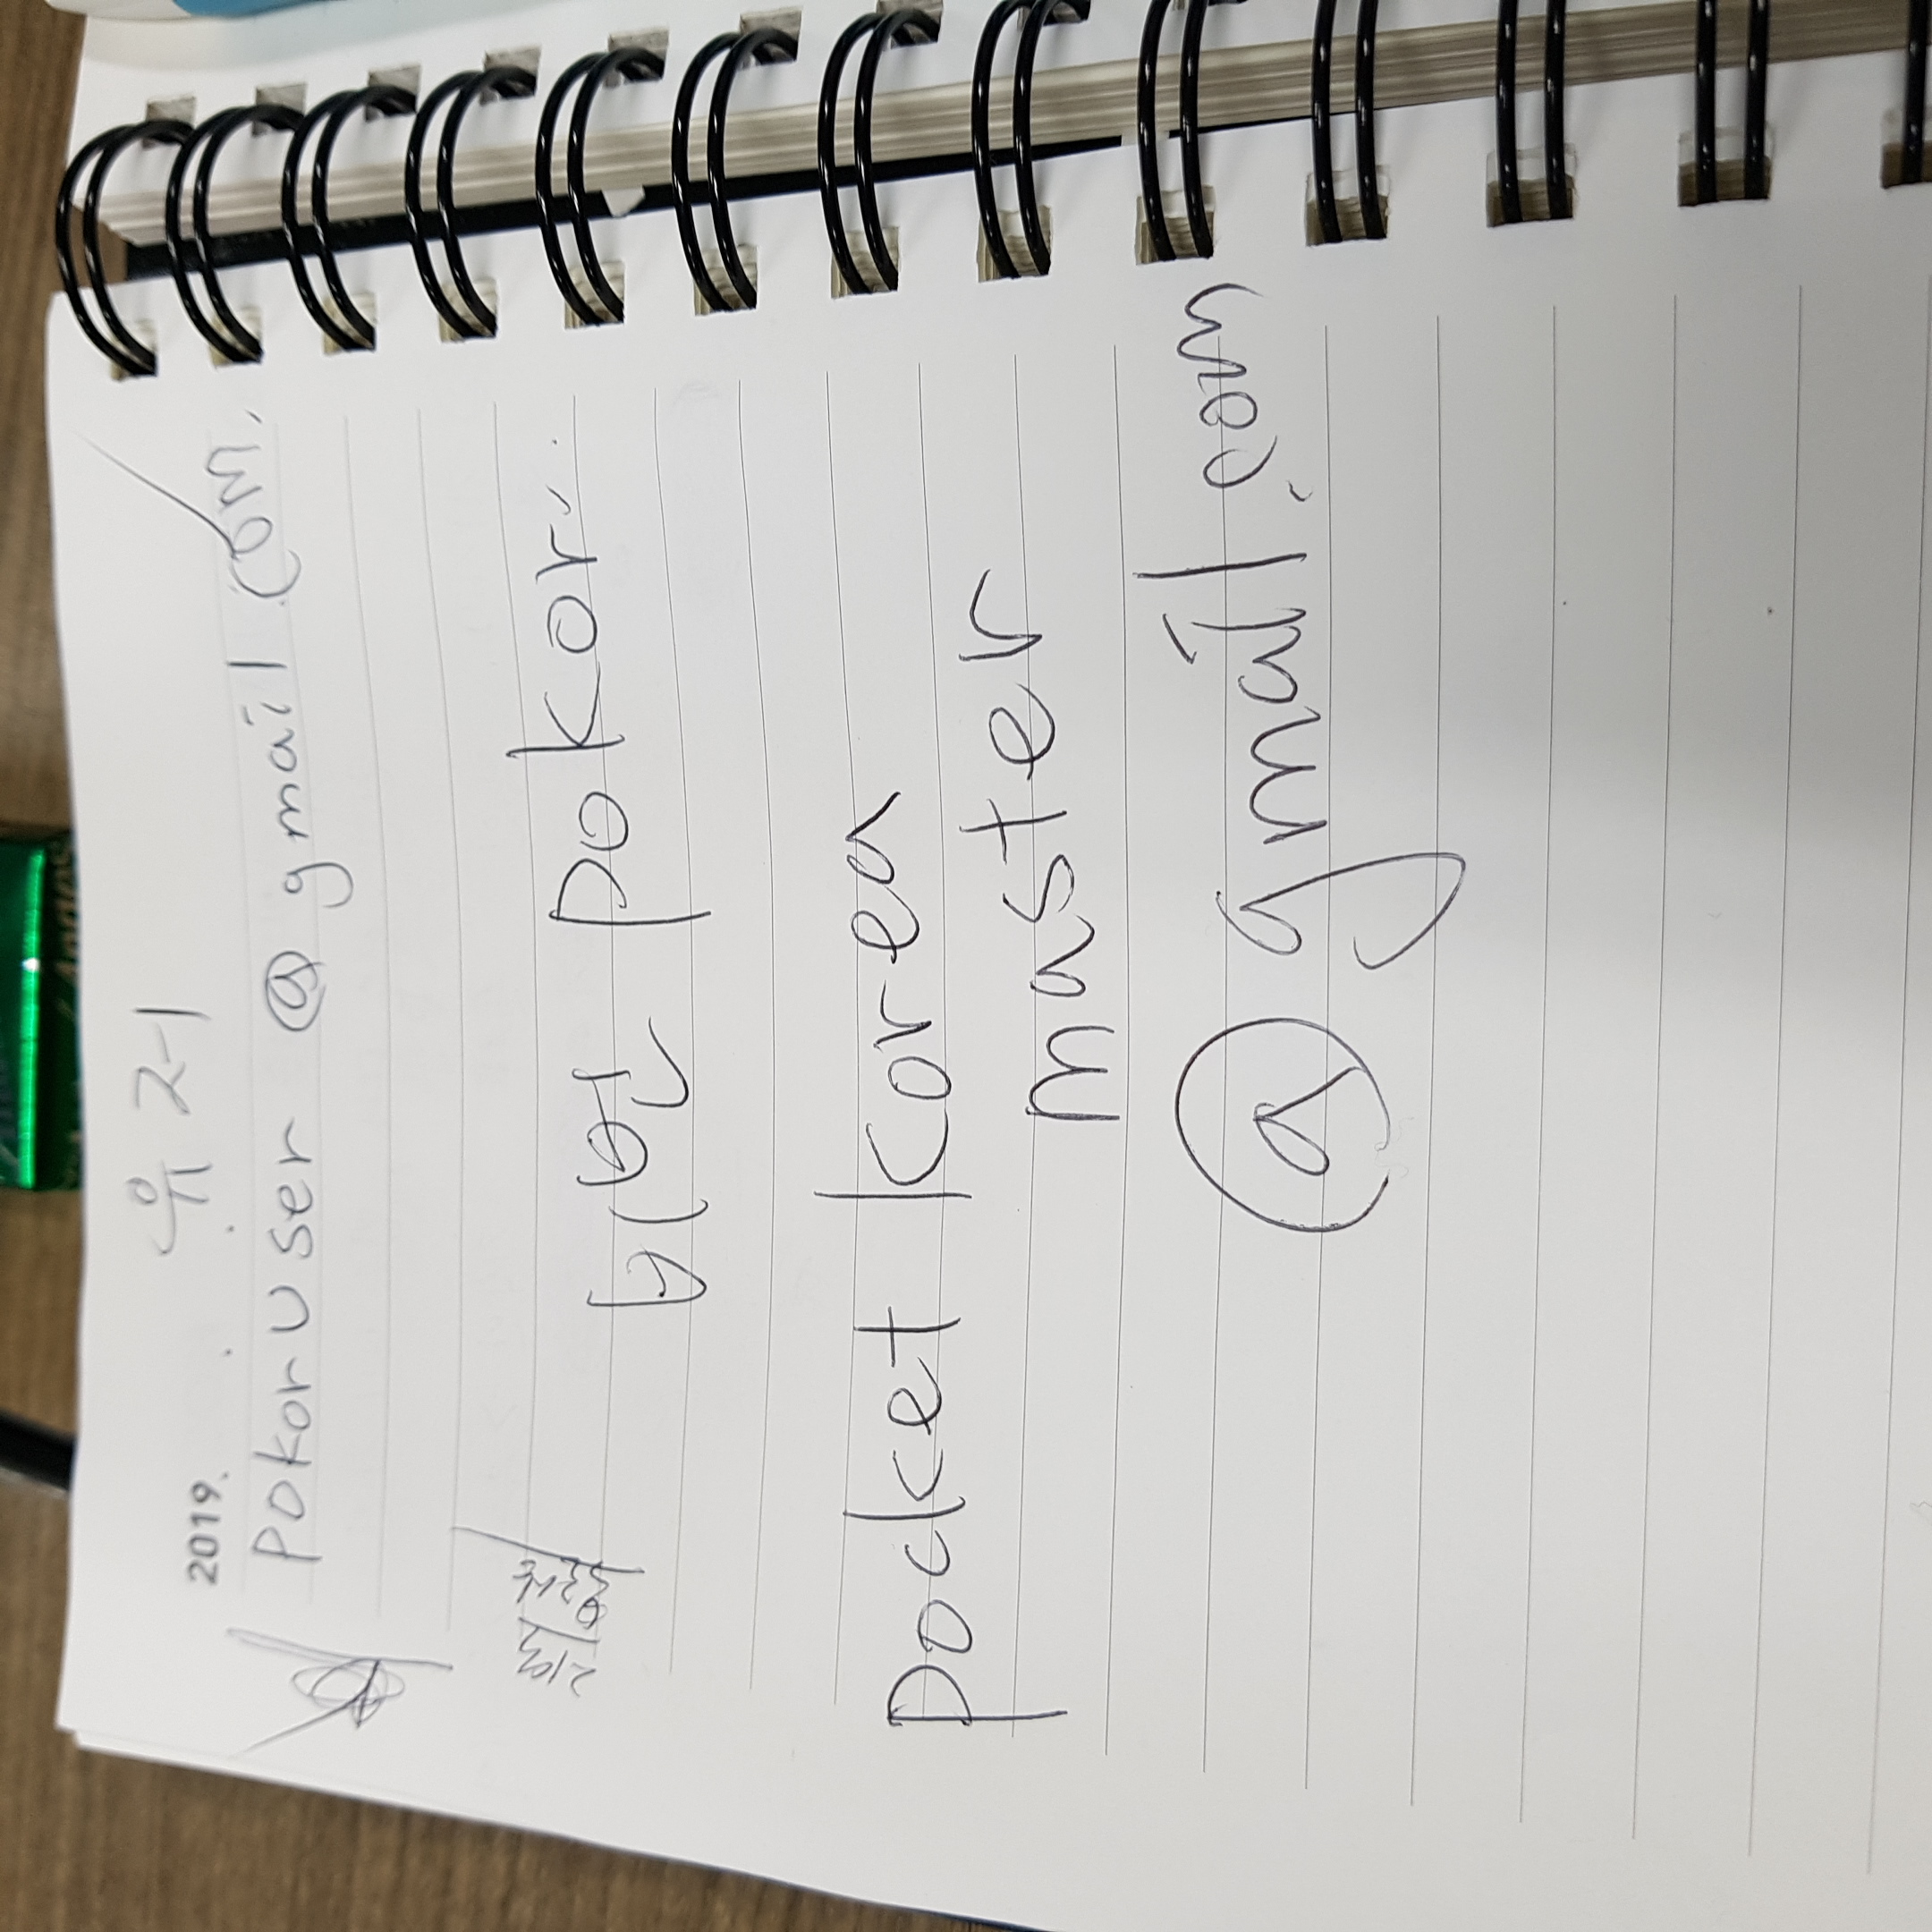 Andes
유저
2019. . .
pokorUser @ gmail.com.
비번 pokor...
pocket korea
master
@ gmail.com